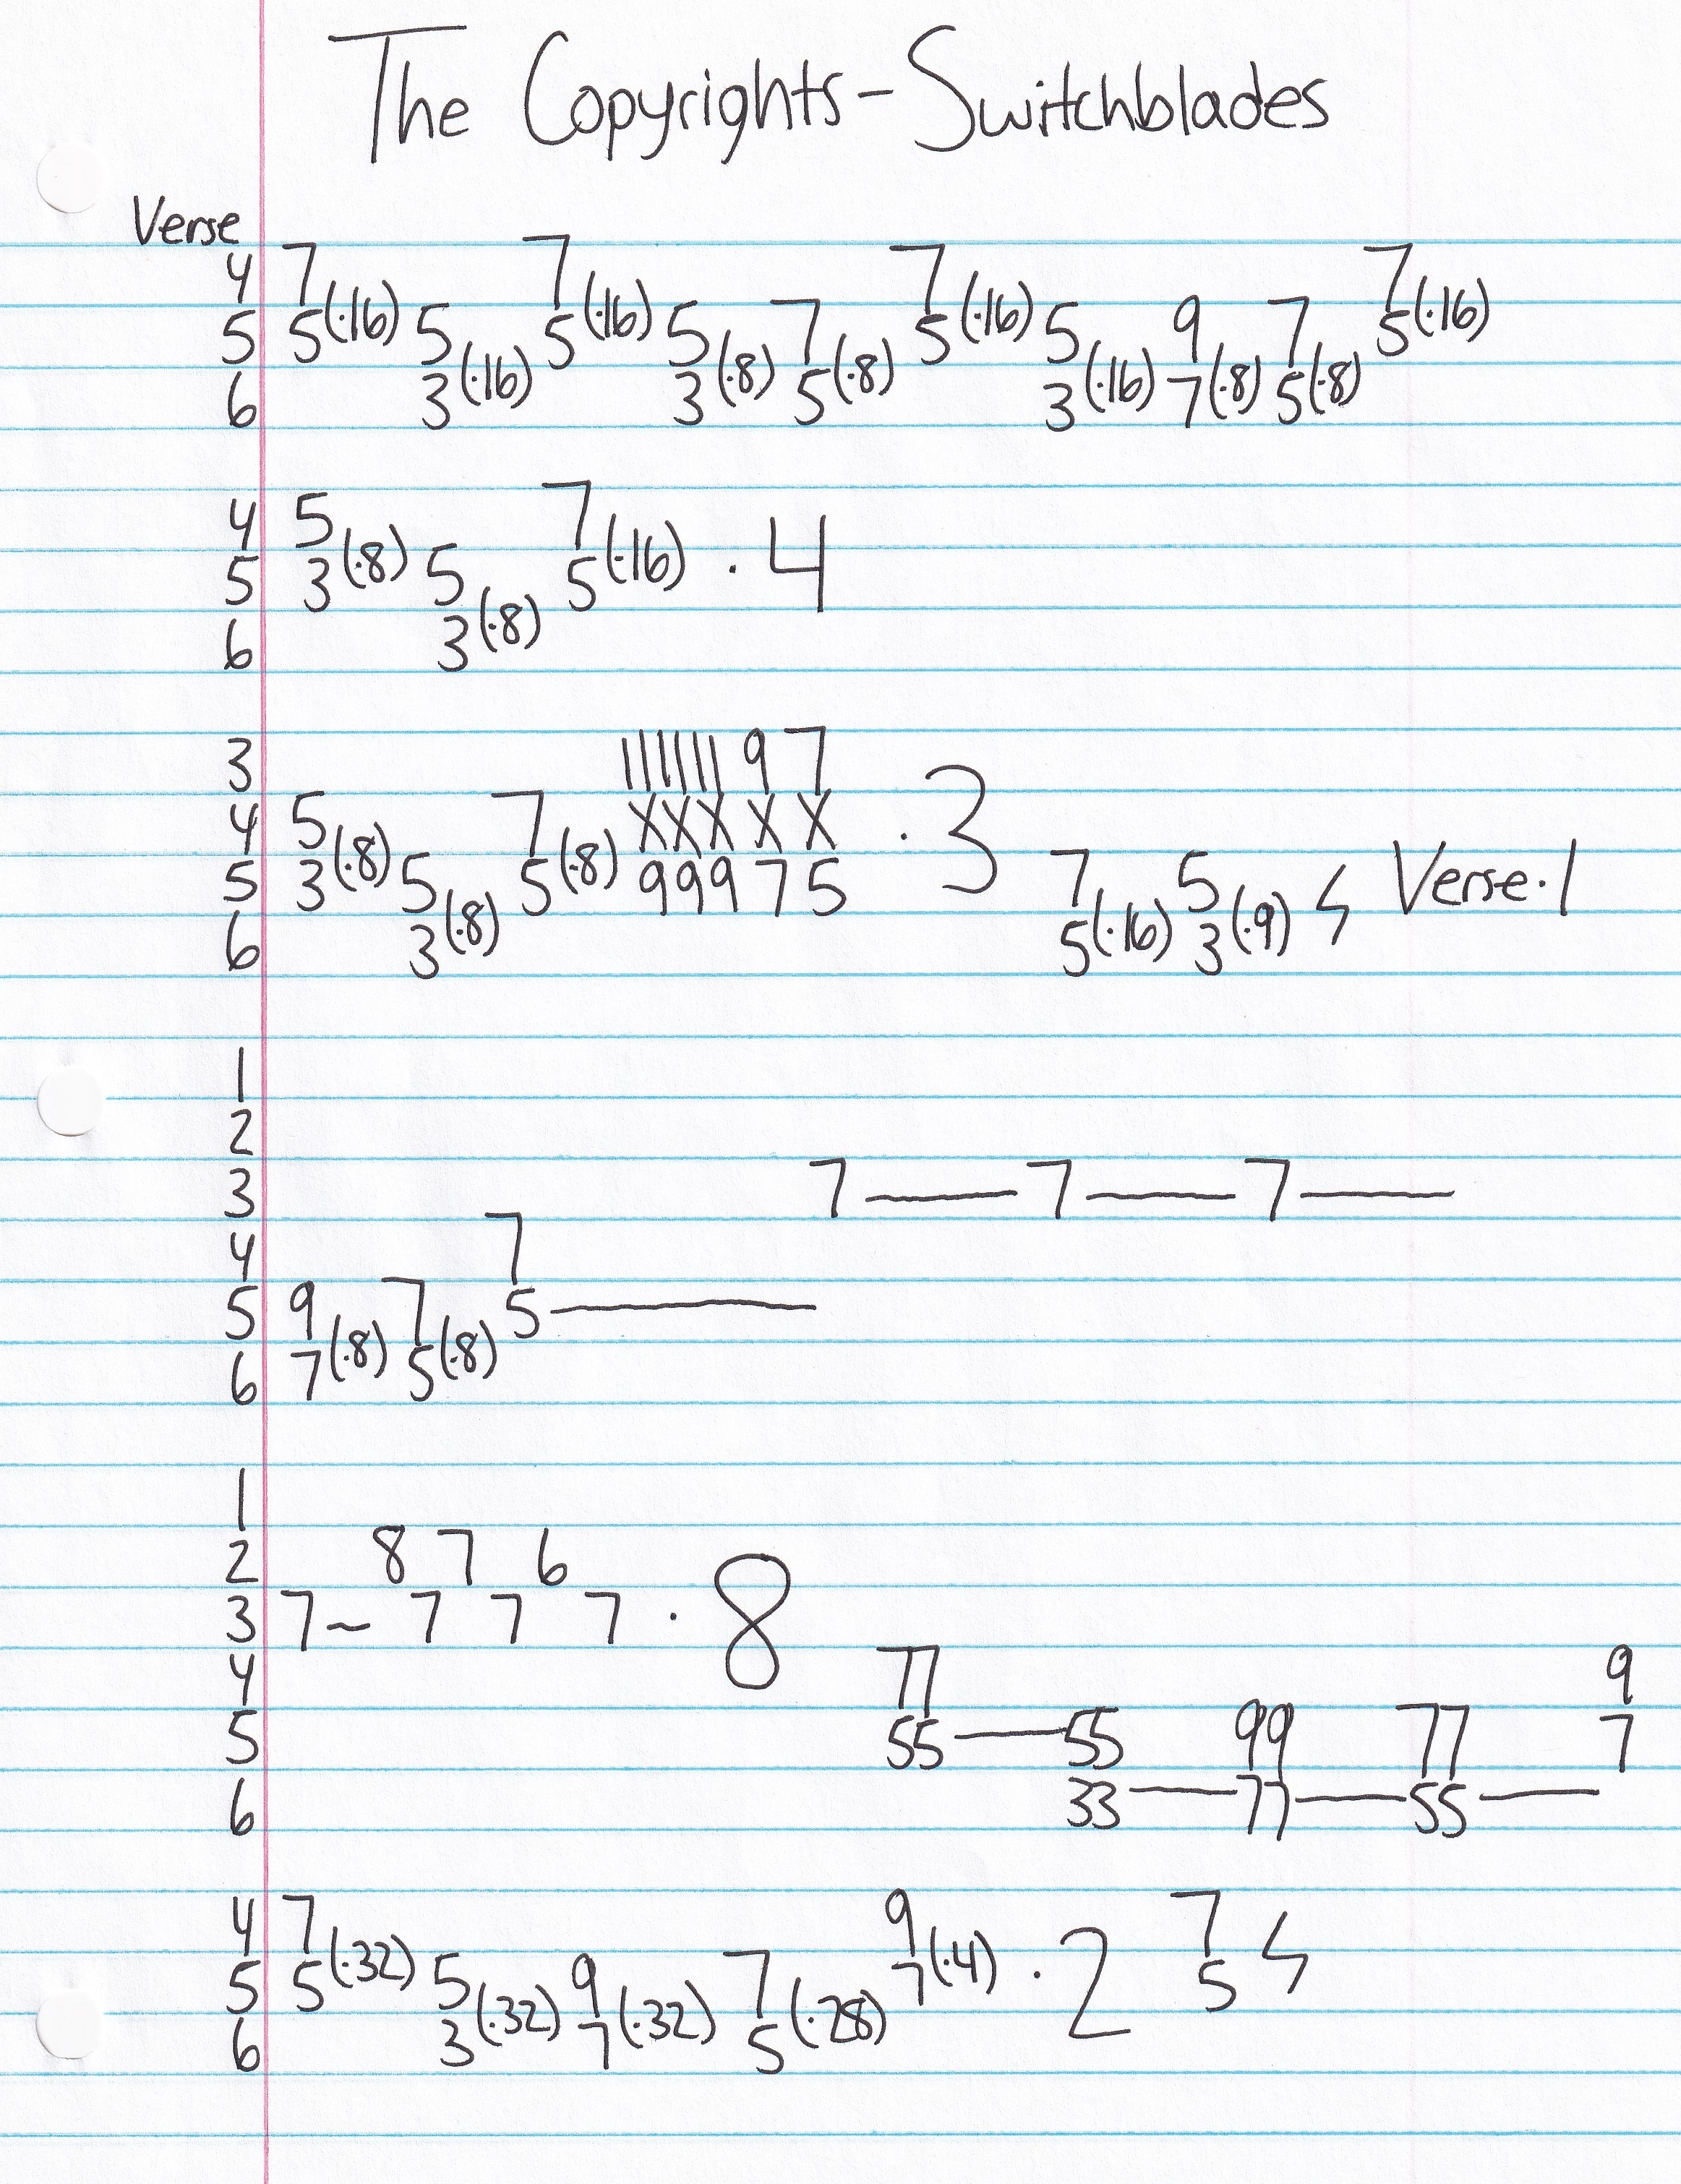 The Copyrights - Switchblades
Verse
4 7 7 7 7
5 5(·16) 5 5(·16) 5 7 5(·16) 5 9 7 5(·16)
6 3(·16) 3(·8) 5(·8) 3(·16) 7(·8) 5(·8)
4 5 7
5 3(·8) 5 5(·16) · 4
6 3(·8)
3 11 11 11 9 7
4 5 7 X X X X X · 3
5 3(·8) 5 5(·8) 9 9 9 7 5 7 5 Verse · 1
6 3(·8) 5(·16) 3(·9) ϟ
1
2
3 7 — 7 — 7 —
4 7
5 9 7 5 —
6 7(·8) 5(·8)
1
2 8 7 6
3 7 ~ 7 7 7 · 8
4 77 9
5 55 — 55 99 77 7
6 33 — 77 — 55 —
4 7 9 7
5 5(·32) 5 9 7 7(·4) · 2 5 ϟ
6 3(·32) 7(·32) 5(·28)